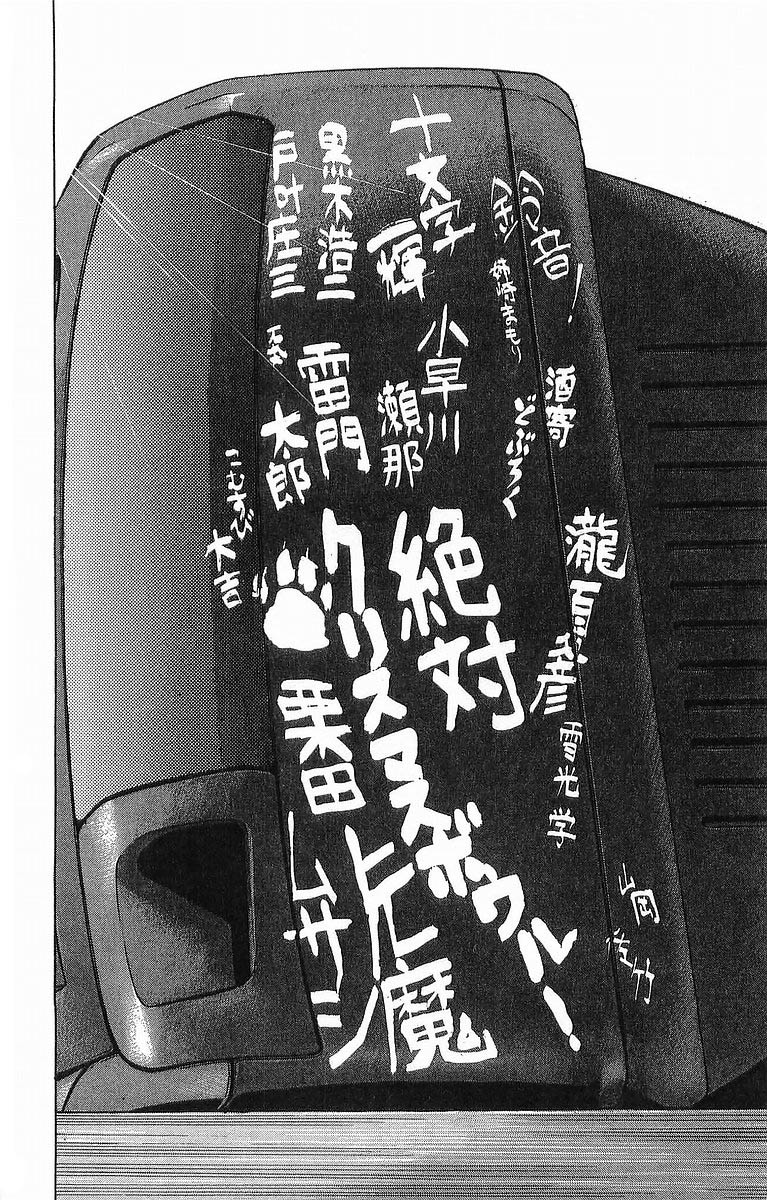 鈴音!
姉崎まもり
酒寄
どぶろく
瀧夏彦
雪光学
山岡
佐竹
十文字
一輝
黒木浩二
戸叶庄三
小早川
瀬那
雷門
太郎
石丸
こむすび
大吉
絶対
クリスマスボウル!
栗田
ムサシ
ヒル魔